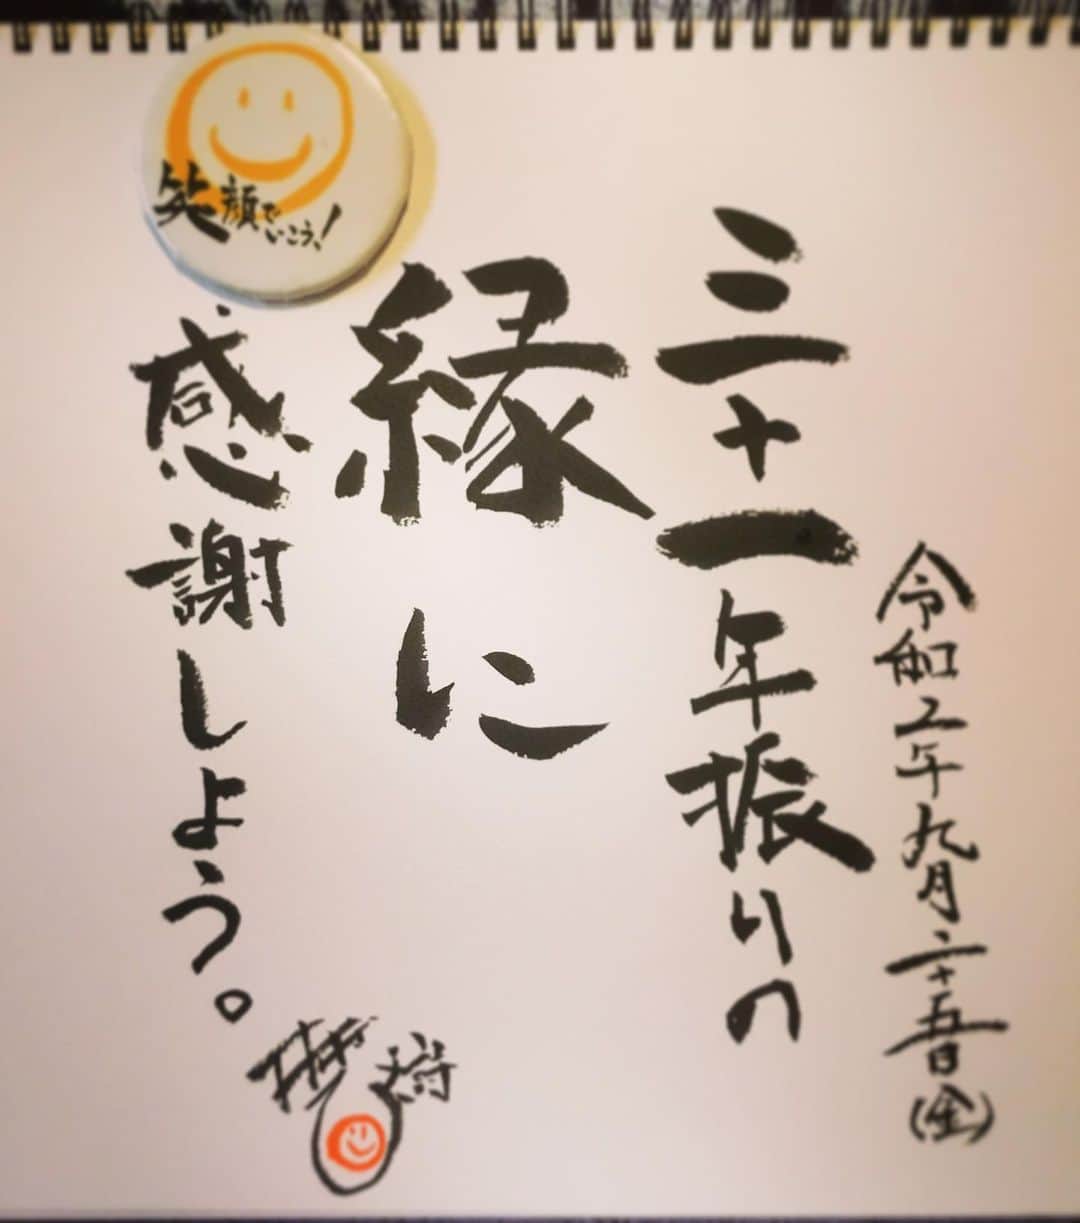 令和二年九月二十五日(金)
三十一年振りの
縁に
感謝しよう。
笑顔でいこう!